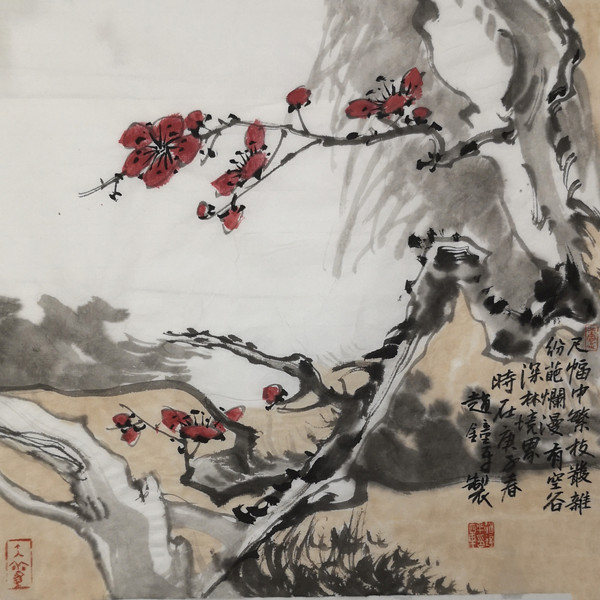 尺幅中繁枝叢雜
紛葩爛漫有空谷
深林境界
時在庚子春
趙鐘製